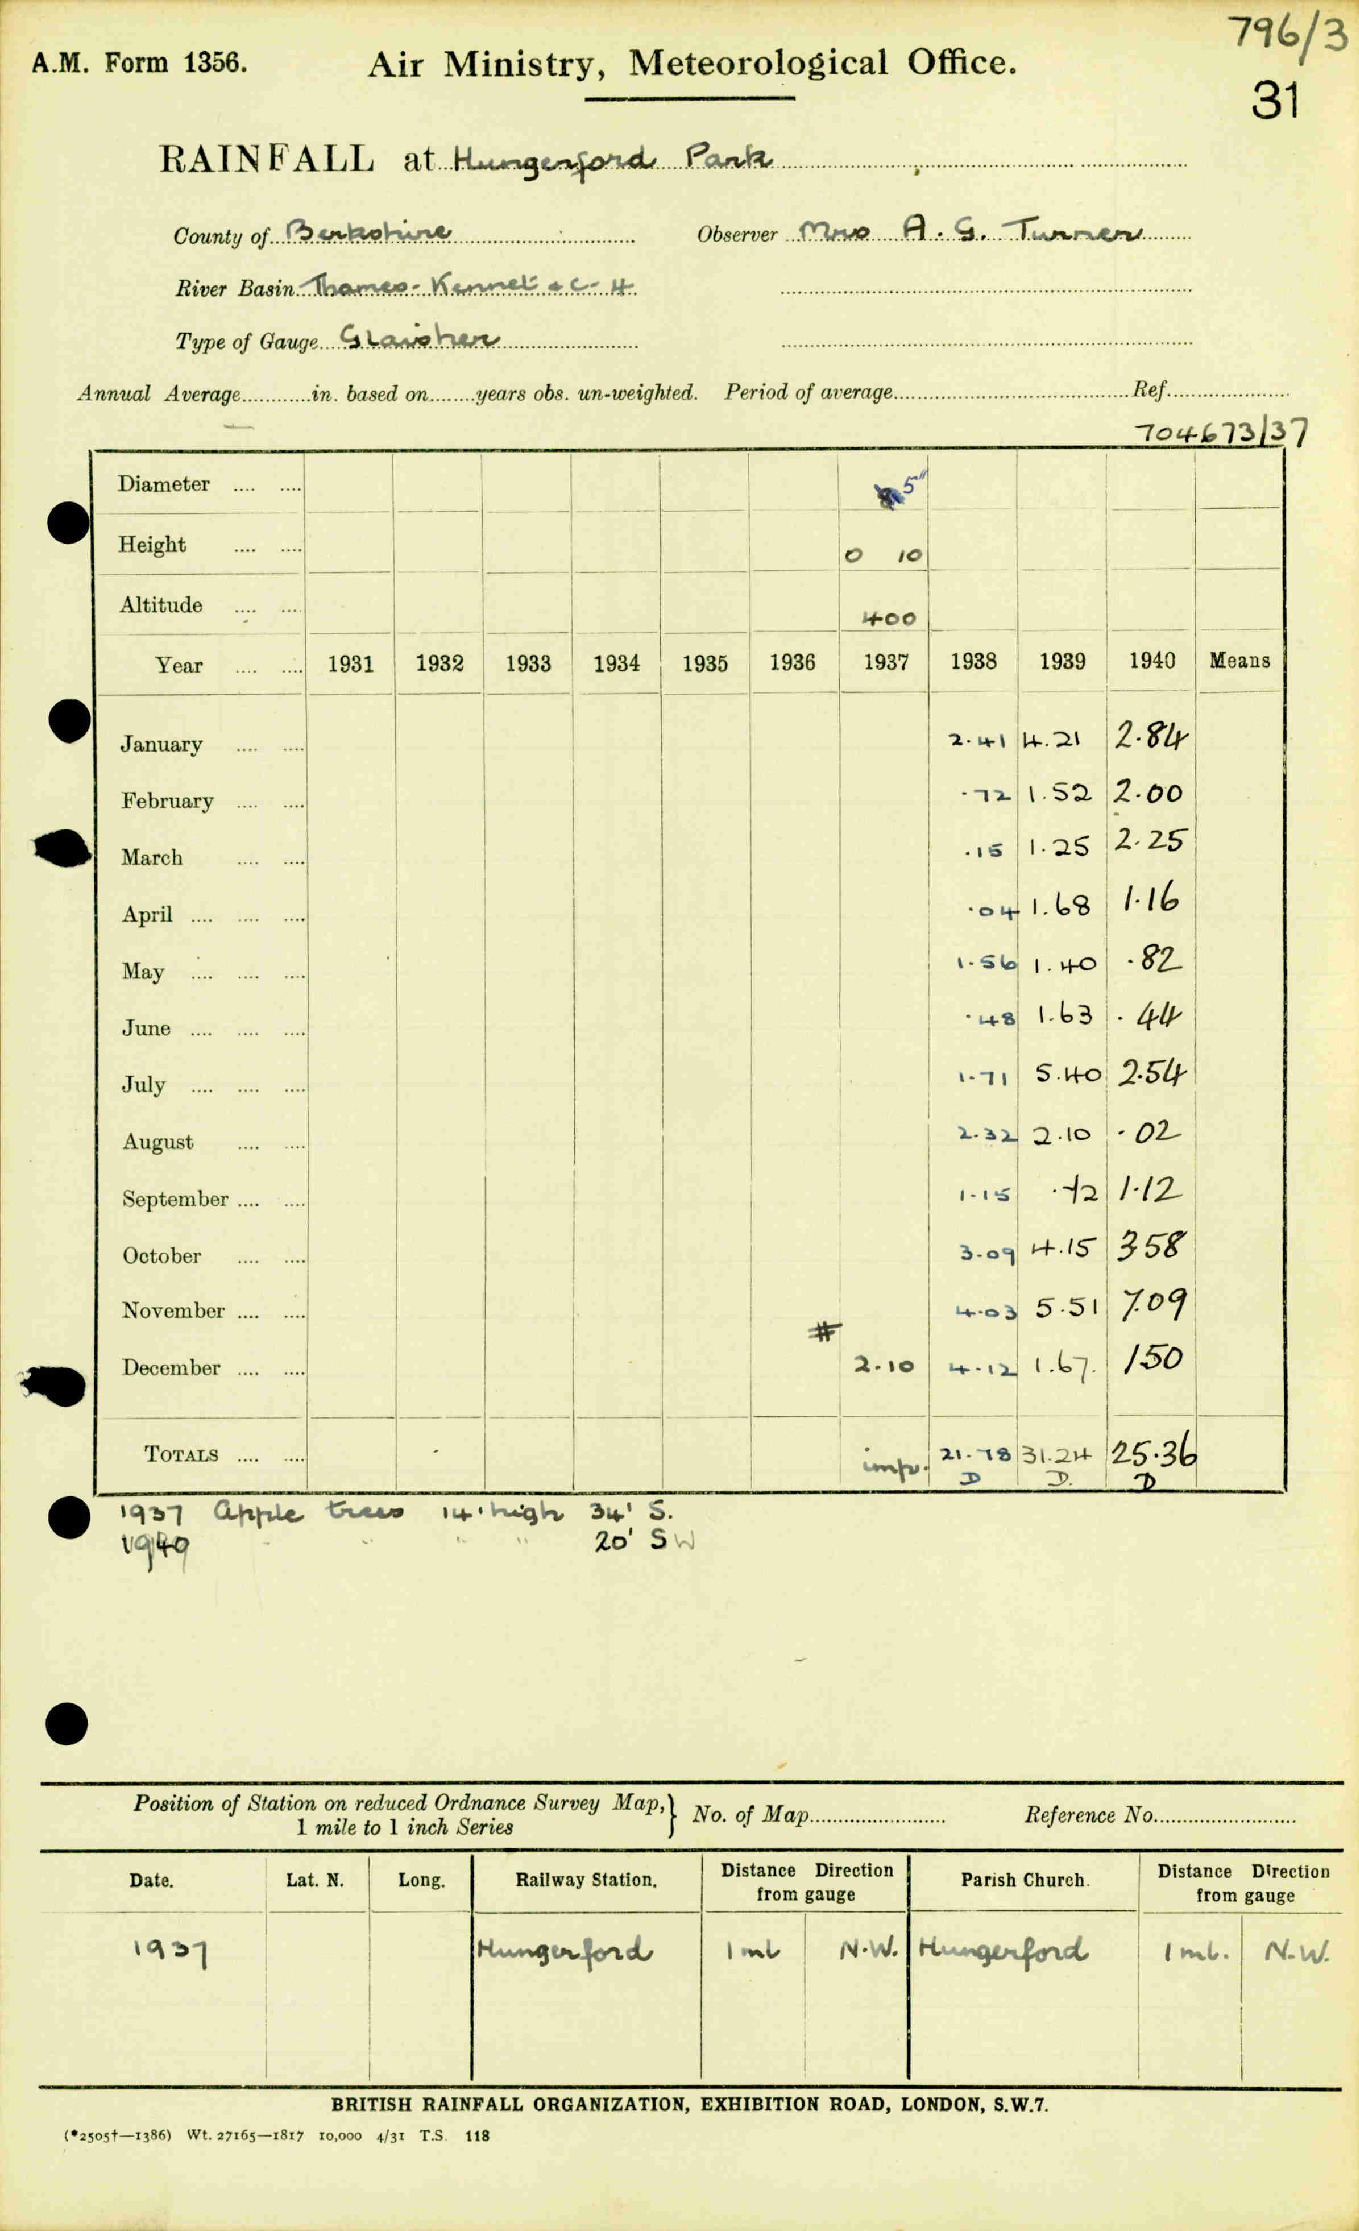 796/3
A.M. Form 1356. Air Ministry, Meteorological Office.
31
RAINFALL at Hungerford Park
County of Berkshire Observer Mrs A. G. Turner
River Basin Thames - Kennet &c - 4
Type of Gauge Glaisher
Annual Average in. based on years obs. un-weighted. Period of average Ref.
704673/37
Diameter 5"
Height 0 10
Altitude 400
Year 1931 1932 1933 1934 1935 1936 1937 1938 1939 1940 Means
January 2.41 4.21 2.84
February .72 1.52 2.00
March .15 1.25 2.25
April .04 1.68 1.16
May 1.56 1.40 .82
June .48 1.63 .44
July 1.71 5.40 2.54
August 2.32 2.10 .02
September 1.15 .72 1.12
October 3.09 4.15 3.58
November 4.03 5.51 7.09
#
December 2.10 4.12 1.67 1.50
TOTALS imp. 21.78 31.24 25.36
D D. D
1937 Apple trees 14' high 34' S.
1940 " " " 20' SW
Position of Station on reduced Ordnance Survey Map, } No. of Map Reference No.
1 mile to 1 inch Series
Date. Lat. N. Long. Railway Station. Distance Direction from gauge Parish Church. Distance Direction from gauge
1937 Hungerford 1 ml N.W. Hungerford 1 ml. N.W.
BRITISH RAINFALL ORGANIZATION, EXHIBITION ROAD, LONDON, S.W.7.
(*2505†—1386) Wt. 27165—1817 10,000 4/31 T.S. 118